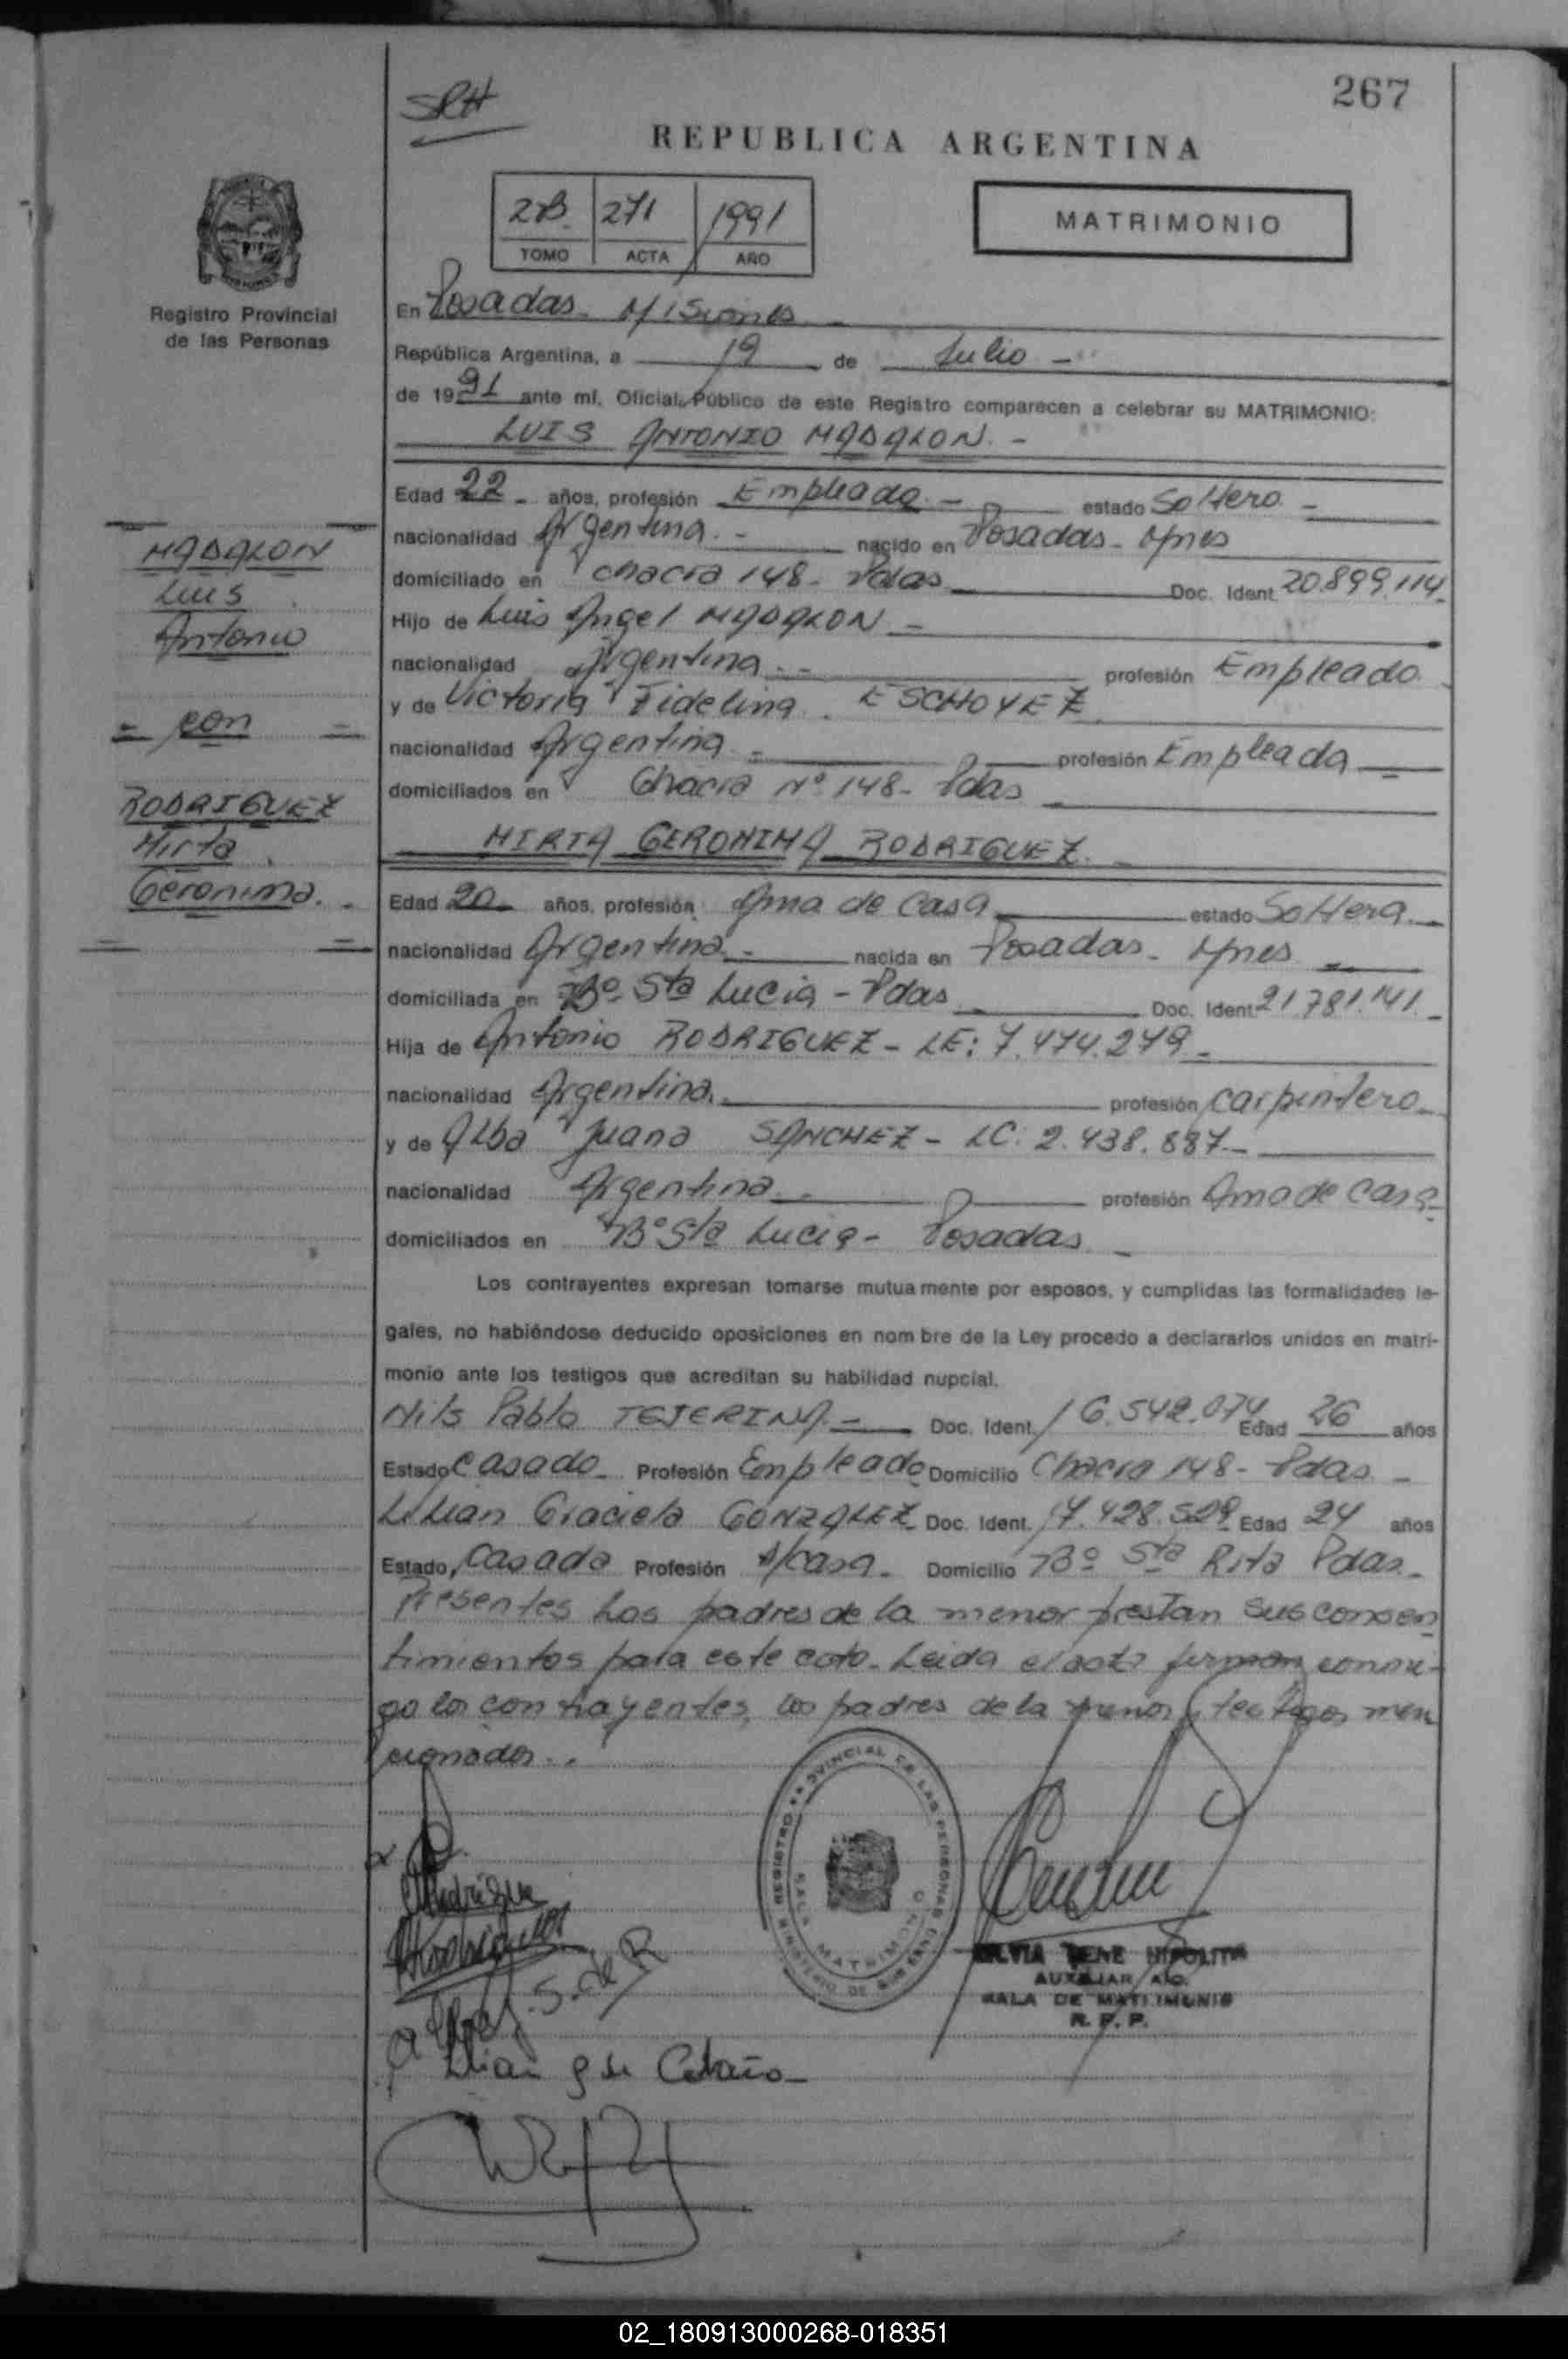 267
SRH
REPUBLICA ARGENTINA
2B 271 1991
TOMO ACTA AÑO
MATRIMONIO
Registro Provincial
de las Personas
En Posadas - Misiones -
República Argentina, a 19 de Julio -
de 1991 ante mí, Oficial Público de este Registro comparecen a celebrar su MATRIMONIO:
LUIS ANTONIO MADALON. -
Edad 22 - años, profesión Empleado - estado Soltero. -
nacionalidad Argentina. - nacido en Posadas - Mnes
domiciliado en chacra 148 - Pdas Doc. Ident. 20.899.114.
Hijo de Luis Angel MADALON -
nacionalidad Argentina. - profesión Empleado
y de Victoria Fidelina ESCHOYEZ
nacionalidad Argentina - profesión Empleada -
domiciliados en Chacra Nº 148 - Pdas -
MADALON
Luis
Antonio
= con =
RODRIGUEZ
Mirta
Geronima. -
MIRTA GERONIMA RODRIGUEZ. -
Edad 20 - años, profesión Ama de Casa estado Soltera -
nacionalidad Argentina - nacida en Posadas - Mnes -
domiciliada en Bº Sta Lucia - Pdas Doc. Ident. 21.781.141. -
Hija de Antonio RODRIGUEZ - LE: 7.474.279 -
nacionalidad Argentina. profesión Carpintero -
y de Alba Juana SANCHEZ - LC: 2.438.887 -
nacionalidad Argentina - profesión Ama de Casa
domiciliados en Bº Sta Lucia - Posadas -
Los contrayentes expresan tomarse mutuamente por esposos, y cumplidas las formalidades le-
gales, no habiéndose deducido oposiciones en nombre de la Ley procedo a declararlos unidos en matri-
monio ante los testigos que acreditan su habilidad nupcial.
Nils Pablo TEJERINA - Doc. Ident. 16.542.074 Edad 26 años
Estado Casado - Profesión Empleado Domicilio Chacra 148 - Pdas -
Lilian Graciela GONZALEZ Doc. Ident. 17.428.529 Edad 24 años
Estado Casada Profesión A/casa - Domicilio Bº Sta Rita Pdas -
Presentes los padres de la menor prestan sus consen
timientos para este acto - Leida el acta firman conmi-
go los contrayentes, los padres de la menor y testigos men
cionados. .
REGISTRO PROVINCIAL DE LAS PERSONAS
SALA MATRIMONIO
MINISTERIO DE GOBIERNO
Rodriguez
S. de R
Lilian G de Cataño -
SILVIA IRENE HIPOLITO
AUXILIAR A/C.
SALA DE MATRIMONIO
R. P. P.
02_180913000268-018351